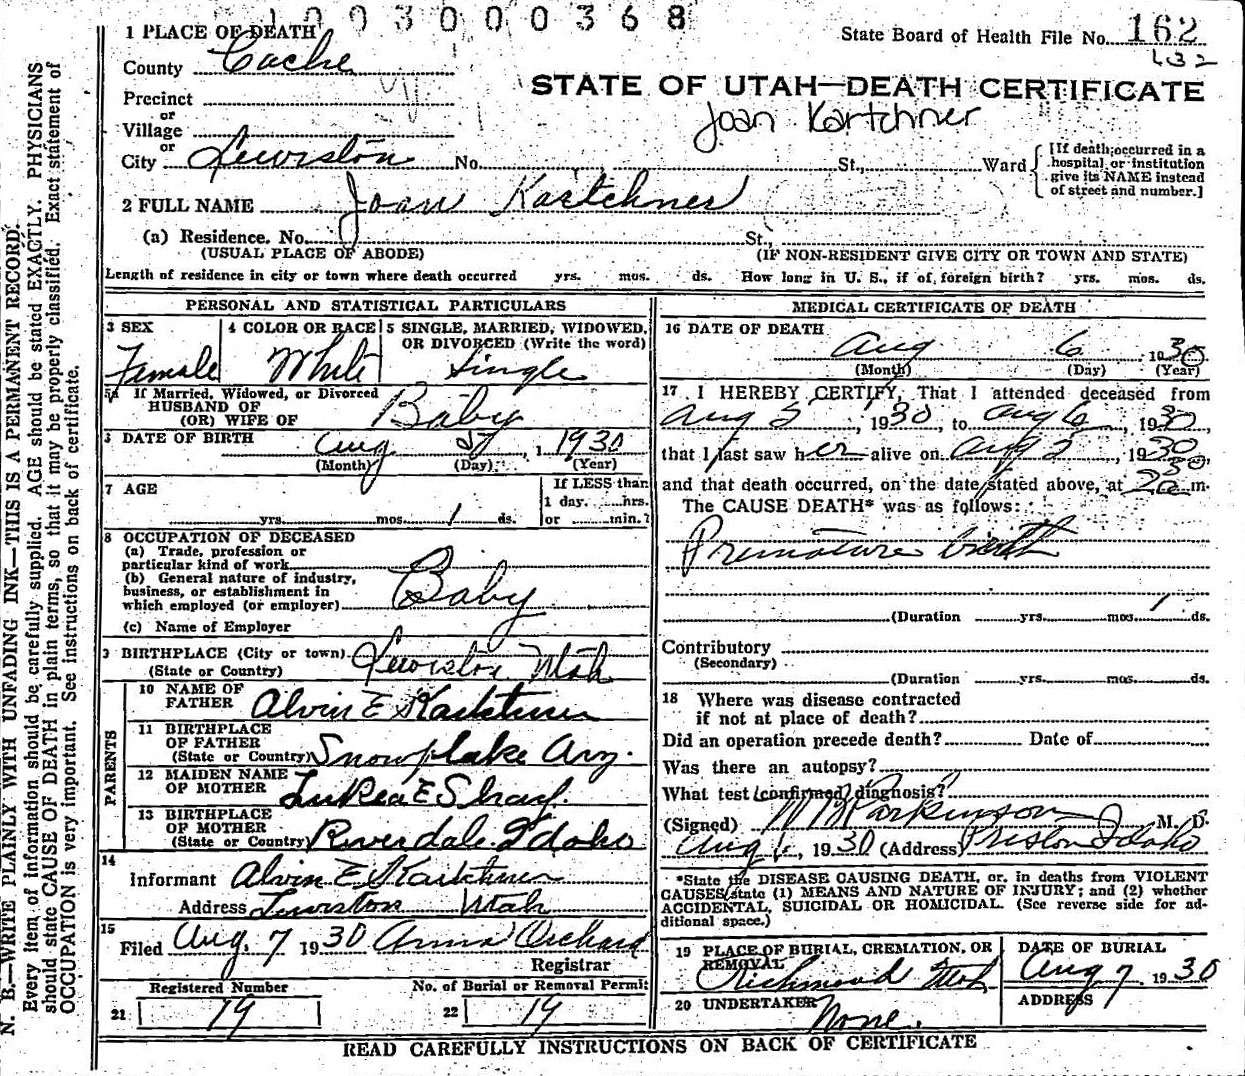 1003000368
1 PLACE OF DEATH
State Board of Health File No. 162
432
County Cache
STATE OF UTAH—DEATH CERTIFICATE
Precinct
or
Joan Kartchner
Village
or
City Lewiston No. St., Ward
[If death occurred in a hospital or institution give its NAME instead of street and number.]
2 FULL NAME Joan Kartchner
(a) Residence. No. St.,
(USUAL PLACE OF ABODE) (IF NON-RESIDENT GIVE CITY OR TOWN AND STATE)
Length of residence in city or town where death occurred yrs. mos. ds. How long in U. S., if of foreign birth? yrs. mos. ds.
PERSONAL AND STATISTICAL PARTICULARS
3 SEX 4 COLOR OR RACE 5 SINGLE, MARRIED, WIDOWED,
OR DIVORCED (Write the word)
Female White Single
5a If Married, Widowed, or Divorced
HUSBAND OF
(OR) WIFE OF Baby
DATE OF BIRTH Aug 1930
(Month) (Day) (Year)
7 AGE If LESS than
1 day. hrs.
yrs. mos. 1 ds. or min.?
8 OCCUPATION OF DECEASED
(a) Trade, profession or
particular kind of work
(b) General nature of industry,
business, or establishment in
which employed (or employer) Baby
(c) Name of Employer
9 BIRTHPLACE (City or town)
(State or Country) Lewiston Utah
PARENTS
10 NAME OF
FATHER Alvin E Kartchner
11 BIRTHPLACE
OF FATHER
(State or Country) Snowflake Ariz.
12 MAIDEN NAME
OF MOTHER E
13 BIRTHPLACE
OF MOTHER
(State or Country) Riverdale Idaho
14
Informant Alvin E Kartchner
Address Lewiston Utah
15
Filed Aug. 7 1930 Anna Orchard
Registrar
Registered Number No. of Burial or Removal Permit
21 19 22 19
MEDICAL CERTIFICATE OF DEATH
16 DATE OF DEATH
Aug 6 1930
(Month) (Day) (Year)
17 I HEREBY CERTIFY, That I attended deceased from
Aug 5, 1930, to Aug 6, 1930
that I last saw her alive on Aug 5, 1930,
and that death occurred, on the date stated above, at 2 30 a m.
The CAUSE DEATH* was as follows:
Premature birth
(Duration yrs. mos. 1 ds.
Contributory
(Secondary)
(Duration yrs. mos. ds.
18 Where was disease contracted
if not at place of death?
Did an operation precede death? Date of
Was there an autopsy?
What test (confirmed) diagnosis?
(Signed) Parkinson M. D.
Aug 6, 1930 (Address) Preston Idaho
*State the DISEASE CAUSING DEATH, or, in deaths from VIOLENT
CAUSES, state (1) MEANS AND NATURE OF INJURY; and (2) whether
ACCIDENTAL, SUICIDAL OR HOMICIDAL. (See reverse side for ad-
ditional space.)
19 PLACE OF BURIAL, CREMATION, OR
REMOVAL
Richmond Utah
DATE OF BURIAL
Aug 7 1930
20 UNDERTAKER None.
ADDRESS
READ CAREFULLY INSTRUCTIONS ON BACK OF CERTIFICATE
N. B.—WRITE PLAINLY WITH UNFADING INK—THIS IS A PERMANENT RECORD.
Every item of information should be carefully supplied. AGE should be stated EXACTLY. PHYSICIANS
should state CAUSE OF DEATH in plain terms, so that it may be properly classified. Exact statement of
OCCUPATION is very important. See instructions on back of certificate.